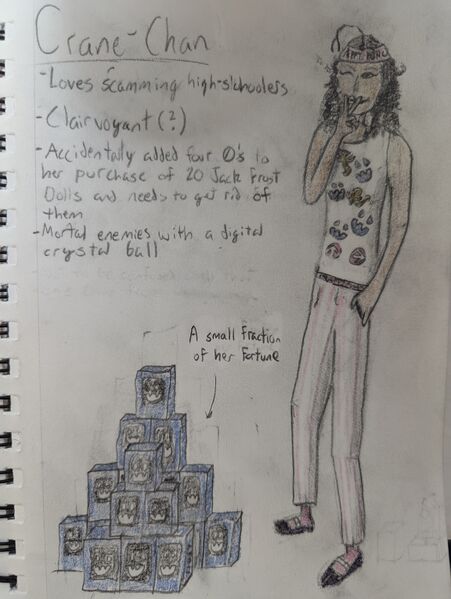 Crane-Chan
-Loves scamming high-schoolers
-Clairvoyant (?)
-Accidentally added four 0's to
her purchase of 20 Jack Frost
Dolls and needs to get rid of
them
-Mortal enemies with a digital
crystal ball
A small fraction
of her fortune